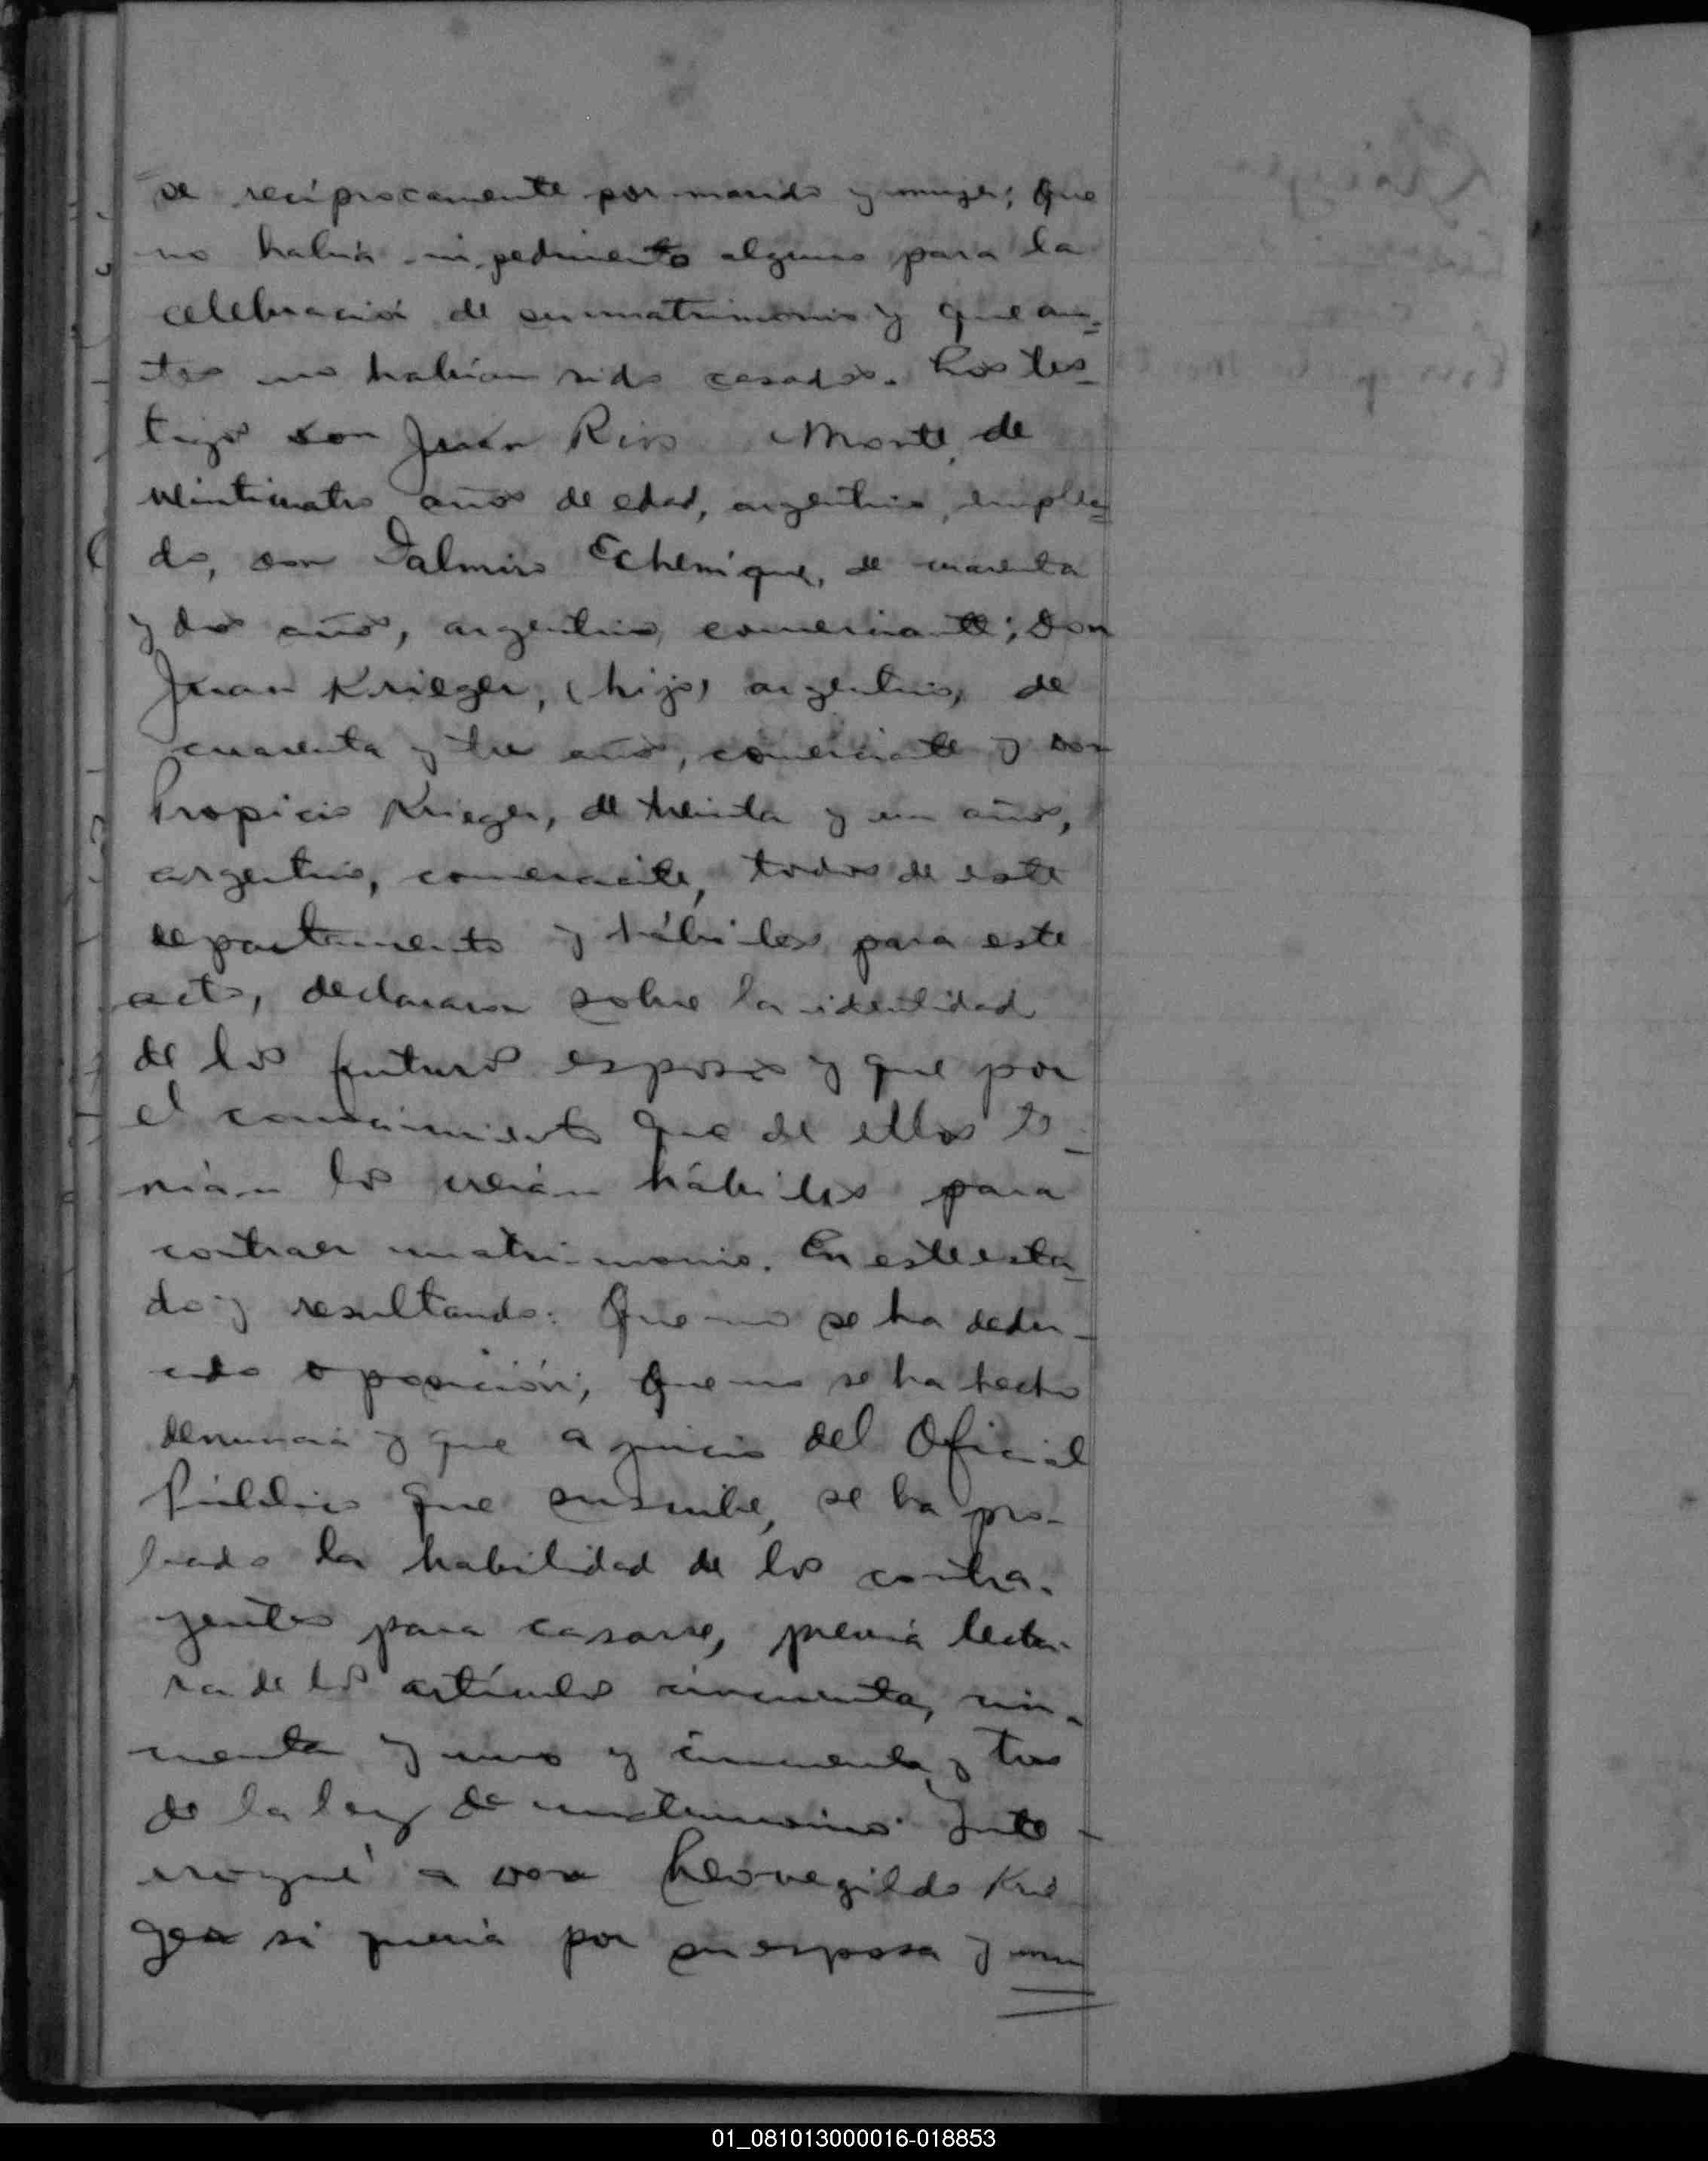 se recíprocamente por marido y muger; que
no había impedimento alguno para la
celebración de su matrimonio y que an-
tes no habían sido casados. Los tes-
tigos don Juan Rios Monte, de
veinticuatro años de edad, argentino, emplea-
do, don Dalmiro Echenique, de cuarenta
y dos años, argentino, comerciante; don
Juan Krieger, (hijo) argentino, de
cuarenta y tres años, comerciante y don
Propicio Krieger, de treinta y un años,
argentino, comerciante, todos de este
departamento y hábiles para este
acto, declararon sobre la identidad
de los futuros esposos y que por
el conocimiento que de ellos te-
nían los creían hábiles para
contraer matrimonio. En este esta-
do y resultando: Que no se ha dedu-
cido oposición; Que no se ha hecho
denuncia y que a juicio del Oficial
Público que suscribe, se ha pro-
bado la habilidad de los contra-
yentes para casarse, previa lectu-
ra de los artículos cincuenta, cin-
cuenta y uno y cincuenta y tres
de la ley de matrimonio. Inte-
rrogué a don Hermegildo Krie
ger si quería por su esposa y mu
01_081013000016-018853